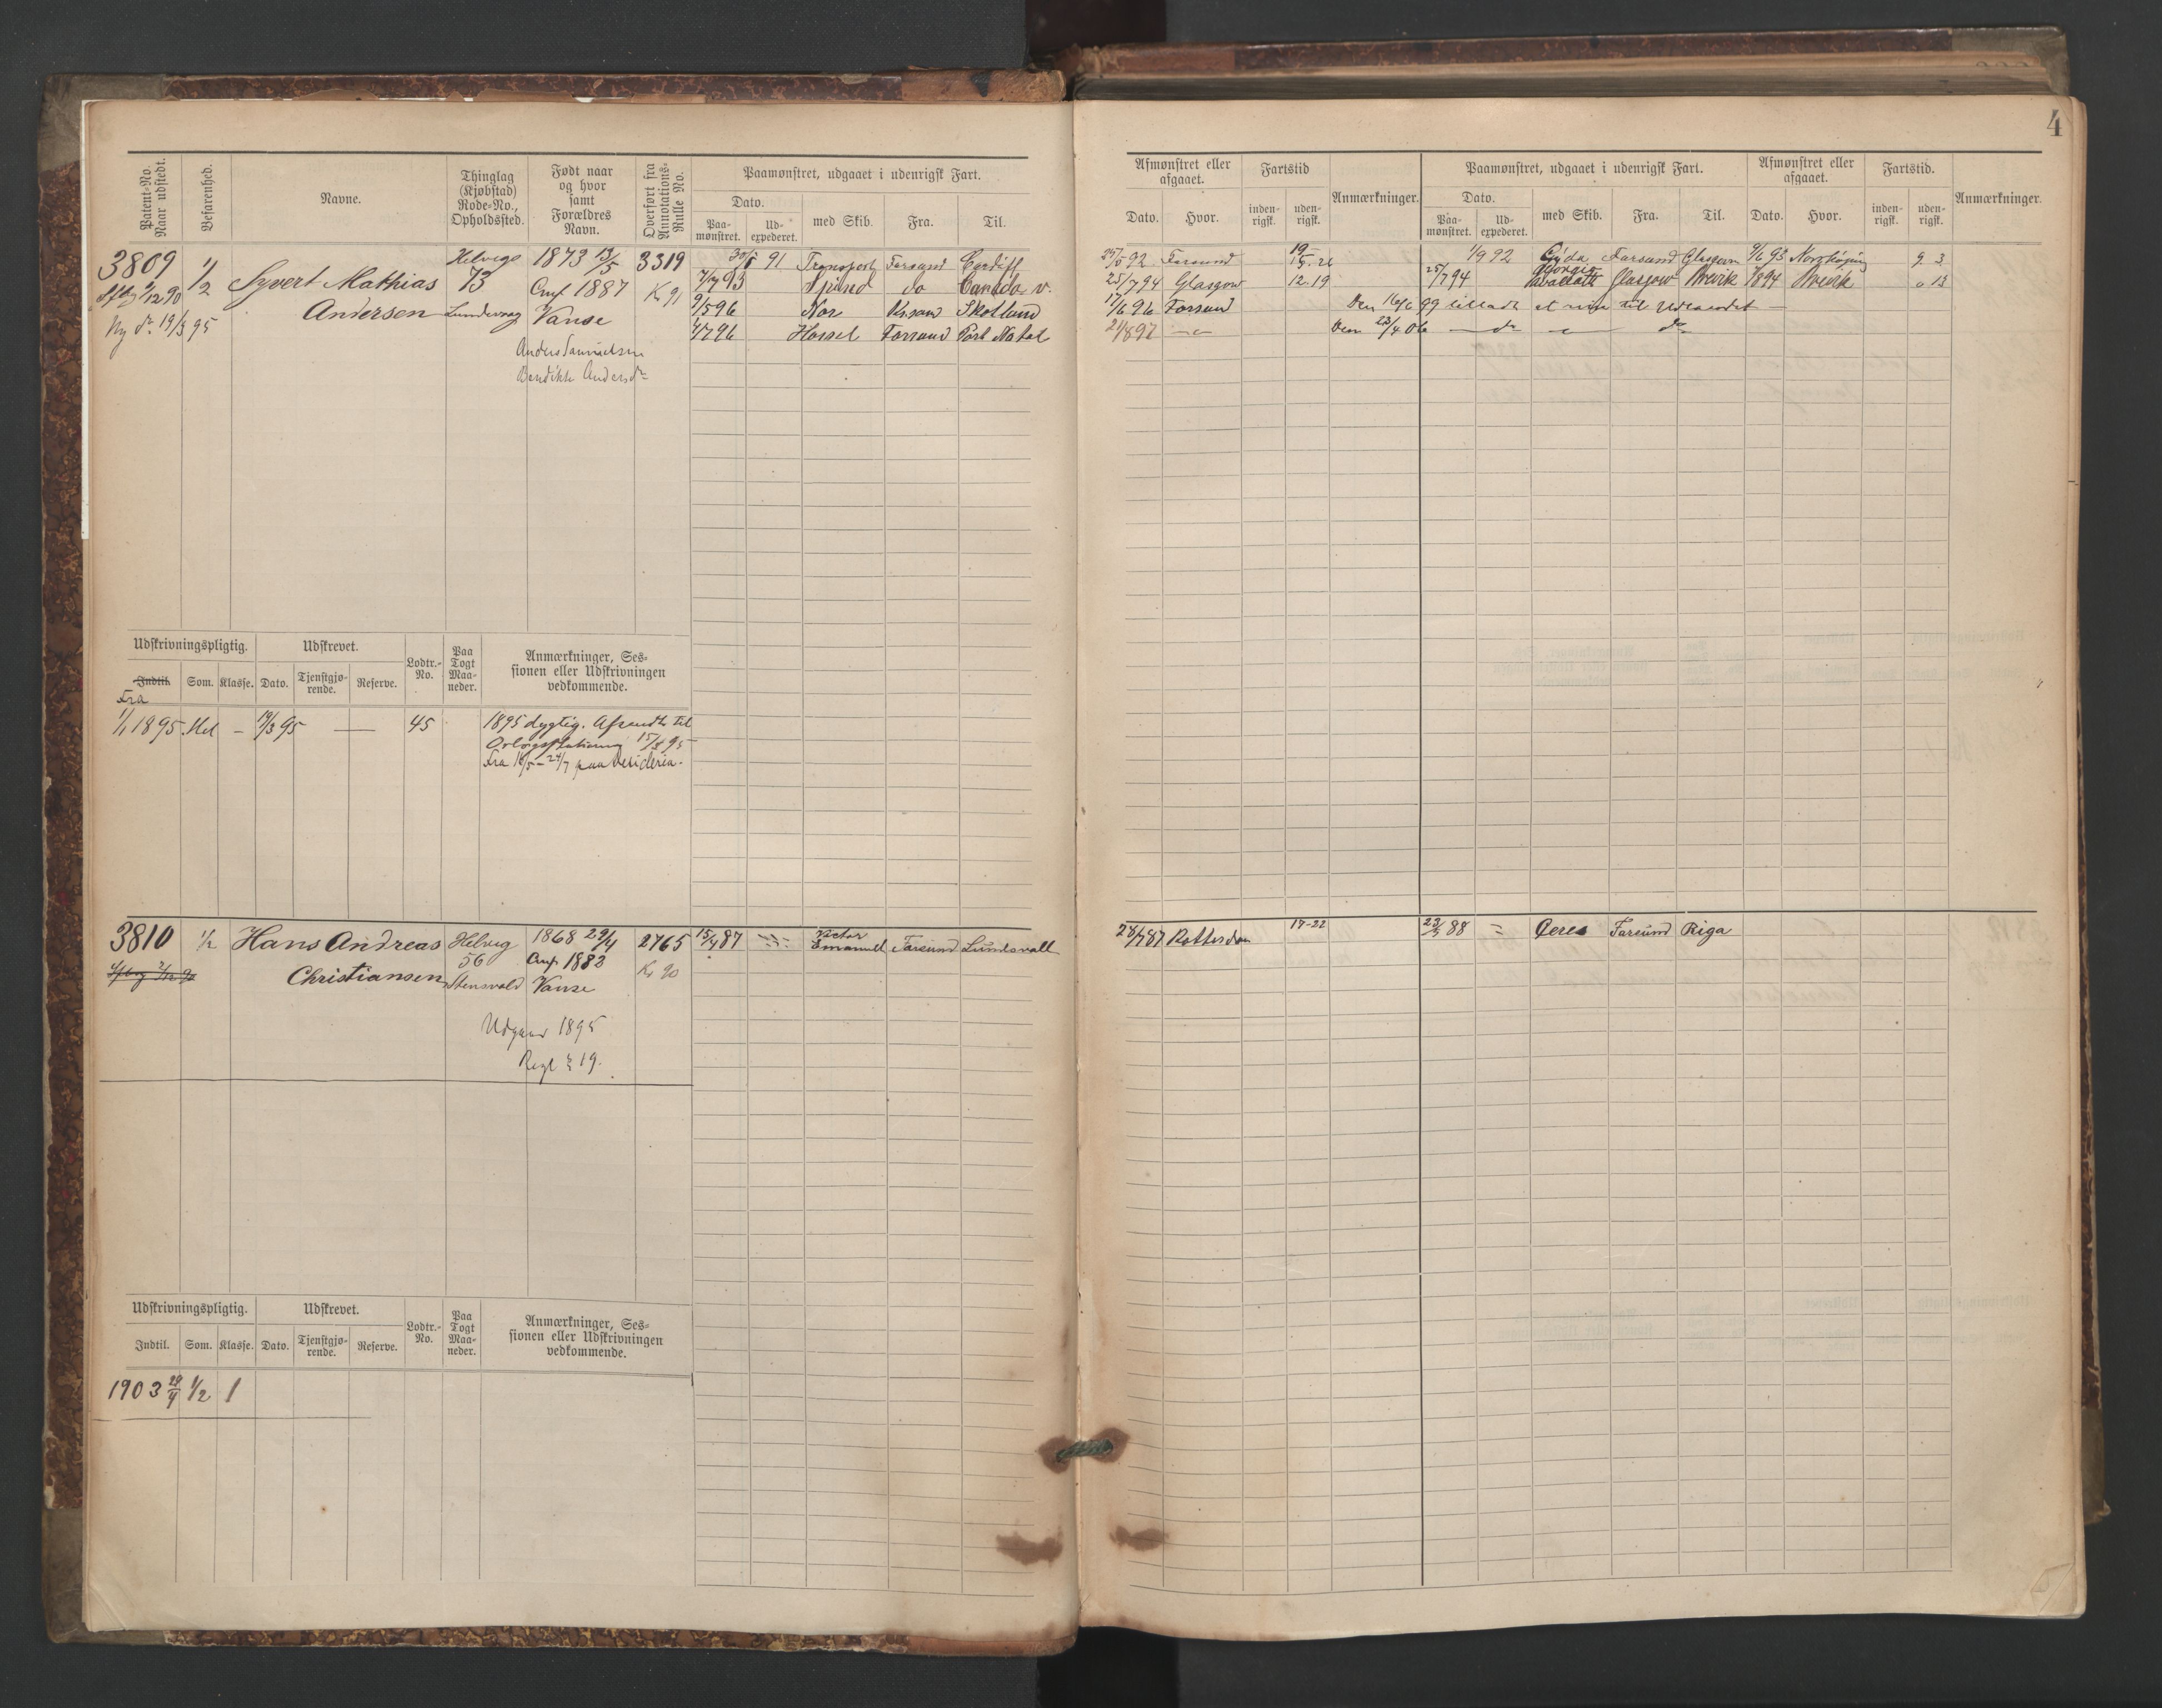 4
Patent-No. Naar udstedt.
Befarenhed.
Navne.
Thinglag (Kjøbstad) Rode-No., Opholdssted.
Født naar og hvor samt Forældres Navn.
Overført fra Annotations-Rulle No.
Paamønstret, udgaaet i udenrigsk Fart.
Dato.
Paa-mønstret.
Ud-expederet.
med Skib.
Fra.
Til.
Afmønstret eller afgaaet.
Dato.
Hvor.
Fartstid
inden-rigsk.
uden-rigsk.
Anmærkninger.
Paamønstret, udgaaet i udenrigsk Fart.
Dato.
Paa-mønstret.
Ud-expederet.
med Skib.
Fra.
Til.
Afmønstret eller afgaaet.
Dato.
Hvor.
Fartstid.
inden-rigsk.
uden-rigsk.
Anmærkninger.
3809 1/2 Syvert Mathias Andersen
Ny do 19/3 95
Helvigs 73 Lundevaag
1873 13/5
Conf. 1887
Vanse
Anders Samuelsen
Bendikte Andersdr
3319
Kr 91
91 Transport Farsund Cardiff
7/7 93 Spind do Canada v.
9/5 96 Nor Skotland
4/7 96 Farsund Port Natal
92 Farsund
25/7 94 Glasgow 12.19
17/6 96 Farsund
21/8 97
1/9 92 Gyda Farsund Glasgow 9/6 93 9 3
25/7 94 Glasgow Brevik 1/8 94 Brevik 0 13
Den 16/6 99 tilladt at reise til Udlandet
Den 23/4 06 do
Udskrivningspligtig.
Udskrevet.
Lodtr.-No.
Paa Togt Maa-neder.
Anmærkninger, Ses-
sionen eller Udskrivningen
vedkommende.
Indtil. Som. Klasse. Dato. Tjenstgjø-rende. Reserve.
Fra
1/1 1895 Hel – 19/3 95 — 45
1895 dygtig. Afsendt til
15/5 95
Fra 16/5 – 24/7 paa Desideria.
3810 1/2 Hans Andreas Christiansen
Helvig 56 Stensvold
1868 29/4
Conf. 1883
Vanse
2765
Kr 90
Udgaar 1895
Regl § 19.
15/4 87 Victor Emanuel Farsund Sundsvall
28/7 87 Rotterdam 17-22
88 Ceres Farsund Riga
Udskrivningspligtig.
Udskrevet.
Lodtr.-No.
Paa Togt Maa-neder.
Anmærkninger, Ses-
sionen eller Udskrivningen
vedkommende.
Indtil. Som. Klasse. Dato. Tjenstgjø-rende. Reserve.
1903 29/4 1/2 1